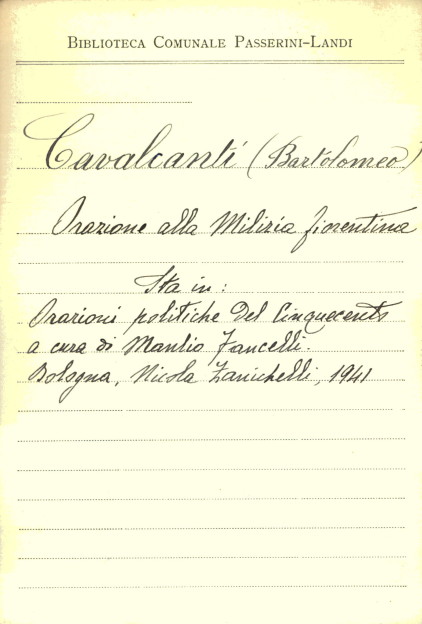 BIBLIOTECA COMUNALE PASSERINI-LANDI
Cavalcanti (Bartolomeo)
Orazione alla Milizia fiorentina
Sta in:
Orazioni politiche del Cinquecento
a cura di Manlio Fancelli.
Bologna, Nicola Zanichelli, 1941